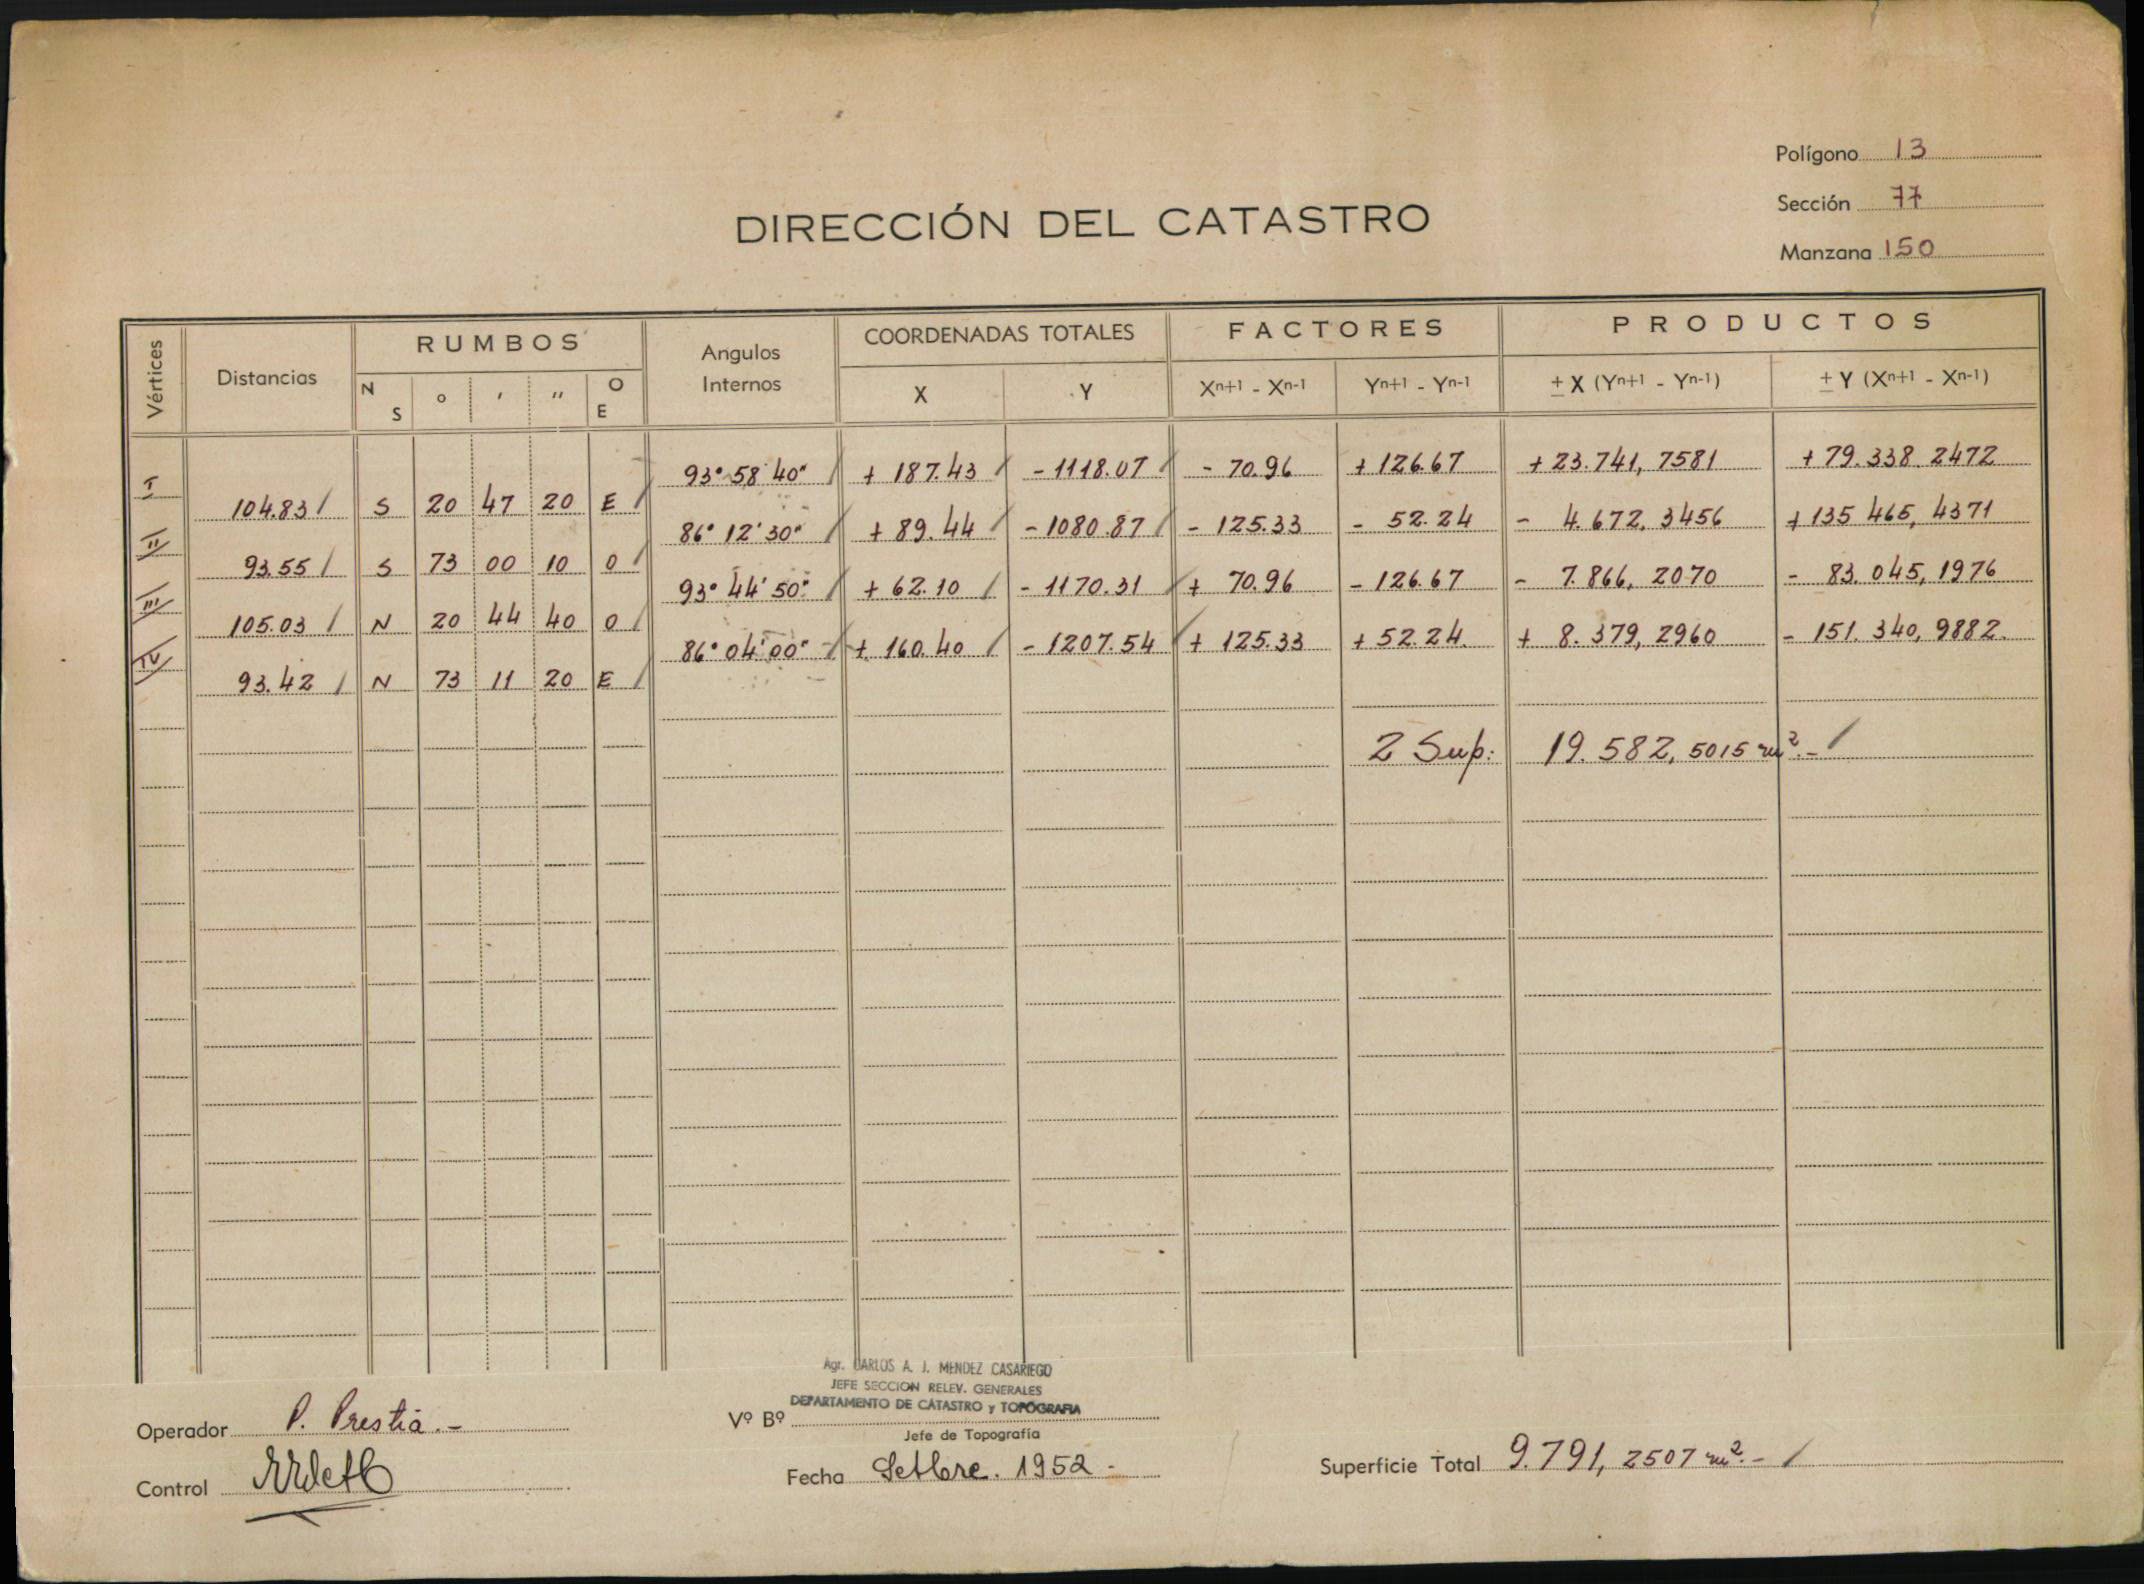 Polígono 13
Sección 77
Manzana 150
DIRECCIÓN DEL CATASTRO
Vértices Distancias RUMBOS Angulos Internos COORDENADAS TOTALES FACTORES PRODUCTOS
N S o ′ ″ O E X Y Xn+1 - Xn-1 Yn+1 - Yn-1 ± X (Yn+1 - Yn-1) ± Y (Xn+1 - Xn-1)
93° 58' 40" + 187.43 - 1118.07 - 70.96 + 126.67 + 23.741, 7581 + 79.338 2472
I 104.83 S 20 47 20 E
86° 12' 30" + 89.44 - 1080.87 - 125.33 - 52.24 - 4.672, 3456 + 135 465, 4371
II 93.55 S 73 00 10 O
93° 44' 50" + 62.10 - 1170.31 + 70.96 - 126.67 - 7.866, 2070 - 83.045, 1976
III 105.03 N 20 44 40 O
86° 04' 00" + 160.40 - 1207.54 + 125.33 + 52.24 + 8.379, 2960 - 151.340, 9882
IV 93.42 N 73 11 20 E
2 Sup: 19.582, 5015 m².-
Agr. CARLOS A. J. MENDEZ CASARIEGO
JEFE SECCION RELEV. GENERALES
DEPARTAMENTO DE CATASTRO y TOPOGRAFIA
Operador P. Prestia.-
Vº Bº
Jefe de Topografía
Control
Fecha Setbre. 1952 -
Superficie Total 9.791, 2507 m².-